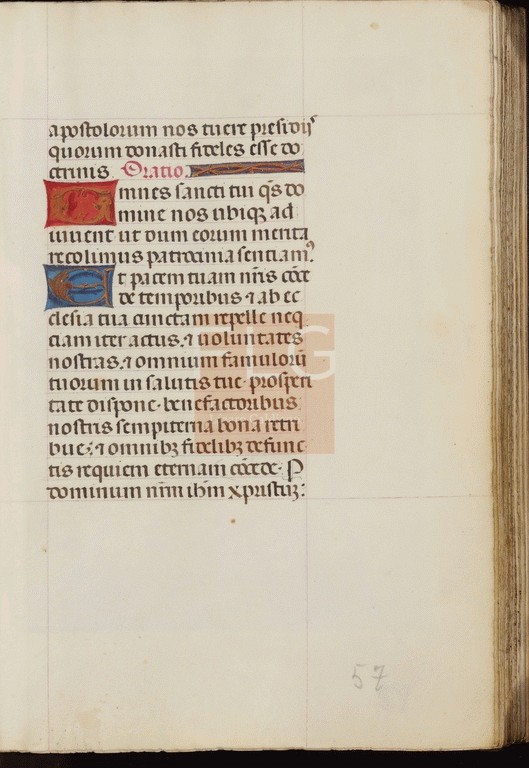 apostolorum nos tuere presidiis
quorum donasti fideles esse do
ctrinis. Oratio.
Omnes sancti tui qs̄ do
mine nos ubiqꝫ ad
iuuent ut dum eorum merita
recolimus patrocinia sentiamꝰ.
Et pacem tuam nr̄is cōce
de temporibus ⁊ ab ec
clesia tua cunctam repelle neq
ciam iter actus ⁊ uoluntates
nostras ⁊ omnium famulorū
tuorum in salutis tue prosperi
tate dispone benefactoribus
nostris sempiterna bona retri
bue ⁊ omnibꝫ fidelibꝫ defunc
tis requiem eternam cōcede. P
dominum nr̄m ihm̄ xp̄ristuꝫ.
FLG
57